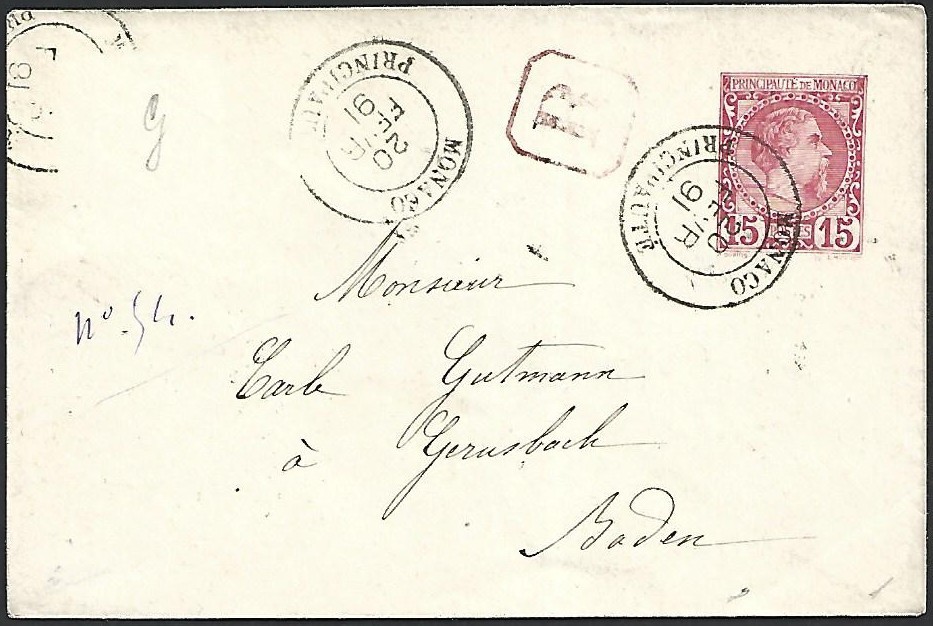 PRINCIPAUTÉ DE MONACO
15 15
MONACO
PRINCIPAUTÉ
20
FEVR
91
R
MONACO
PRINCIPAUTÉ
20
FEVR
91
91
G
Monsieur
No 54.
Carle Gutmann
à Gerusbach
Baden